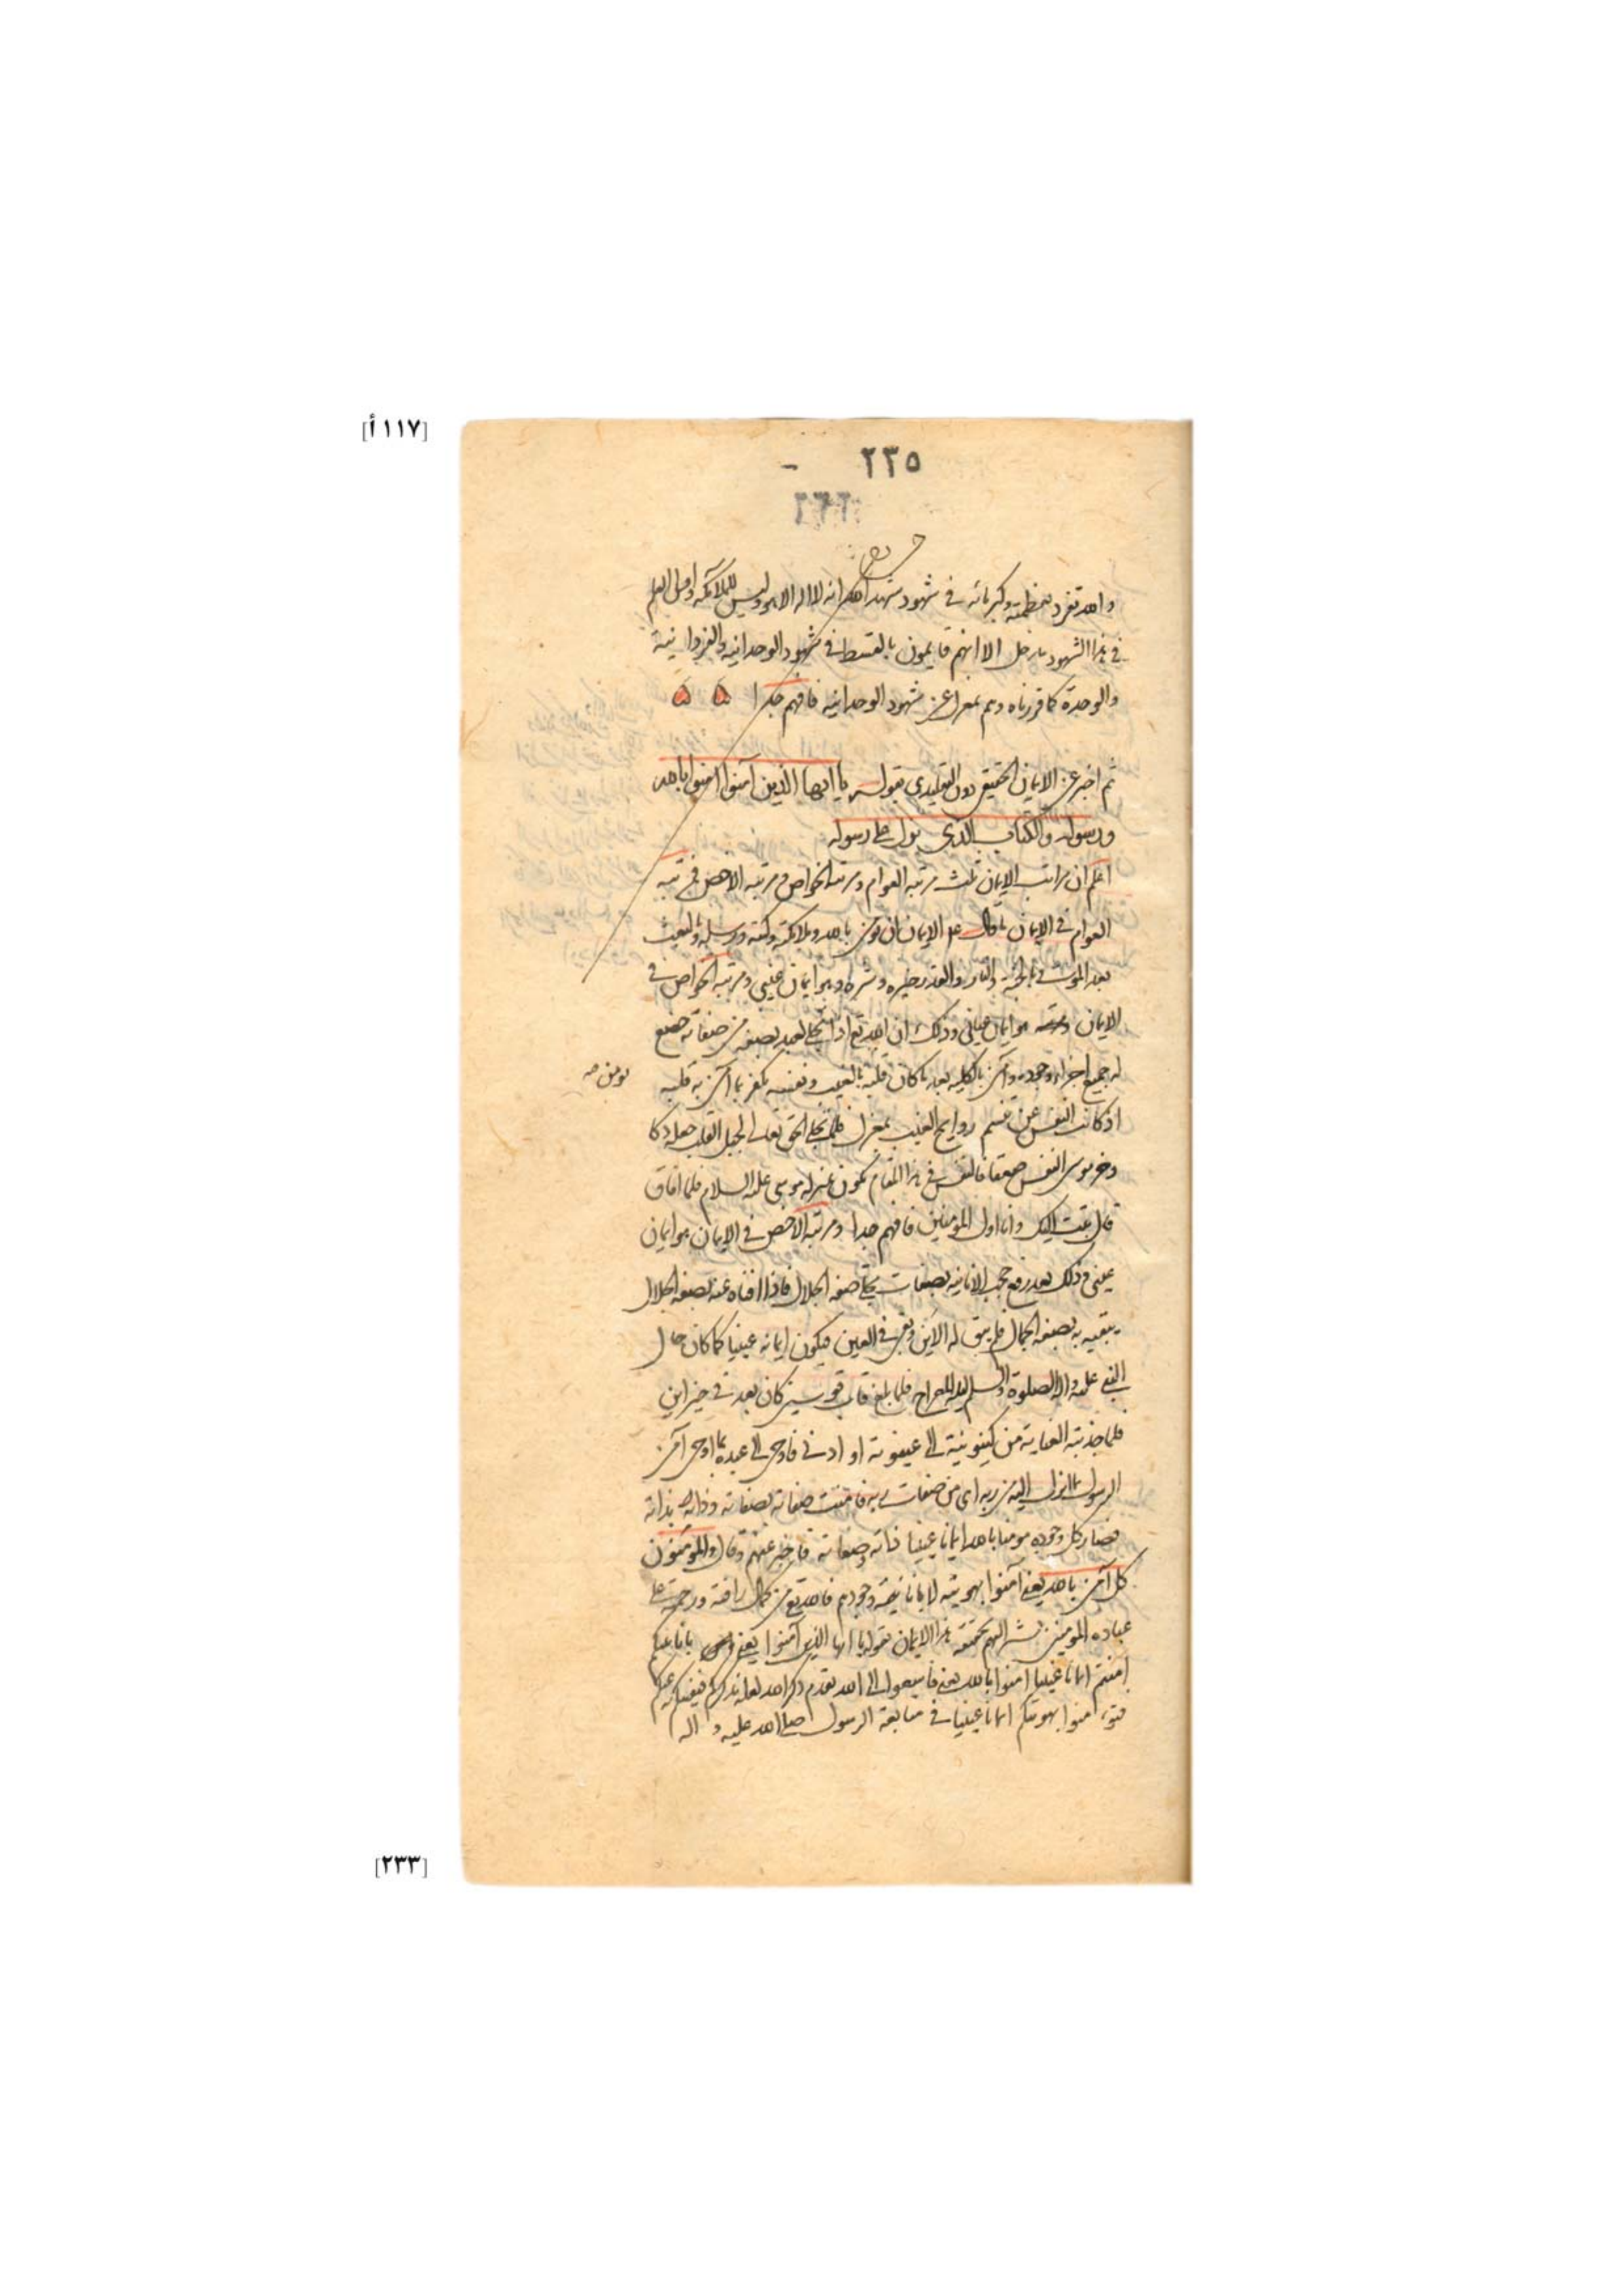 [١١٧ أ]
٢٣٥
والله تفرد بعظمته وكبريائه في شهود شهد الله انه لا اله الا هو وليس للملائكة واولى العلم
في هذا الشهود مدخل الا انهم قايمون بالقسط في شهود الوحدانية والفردانية
والوحدة كما قررناه وهم بمعزل عن شهود الوحدانية فافهم جدا
ثم اخبر عن الايمان الحقيقي دون التقليدي بقوله يا ايها الذين آمنوا امنوا بالله
ورسوله والكتاب الذي نزل على رسوله
اعلم ان مراتب الايمان ثلث مرتبة العوام ومرتبة الخواص ومرتبة الاخص فمرتبة
العوام في الايمان ما قال عم الايمان ان تؤمن بالله وملائكته وكتبه ورسله والبعث
بعد الموت وبالجنة والنار والقدر خيره وشره وهو ايمان غيبي ومرتبة الخواص في
الايمان هو ايمان عياني وذلك ان الله تع اذا تجلى لعبد بصفة من صفاته خضع
له جميع اجزاء وجوده وآمن بالكلية بعد ما كان قلبه بالغيب ونفسه تكفر بما آمن به قلبه
يومن صه
اذ كانت النفس عن تنسم روايح الغيب بمعزل فلما تجلى الحق تعالى لجبل القلب جعله دكا
وخر موسى النفس صعقا فالنفس في هذا المقام تكون بمنزلة موسى عليه السلام فلما افاق
قال تبت اليك وانا اول المؤمنين فافهم جدا ومرتبة الاخص في الايمان هو ايمان
عيني وذلك بعد رفع حجب الانانية بصفات تجلى صفة الجلال فاذا افناه عنه بصفة الجلال
يبقيه به بصفة الجمال فلم يبق له الاين وبقى في العين فيكون ايمانه عينيا كما كان حال
النبي عليه واله الصلوة والسلم ليلة المعراج فلما بلغ قاب قوسين كان بعد في حيز اين
فلما جذبته العناية من كينونية الى عينونة او ادنى فاوحى الى عبده ما اوحى آمن
الرسول بما انزل اليه من ربه اى من صفات ربه فامنت صفاته بصفاته وذاته بذاته
فصار كل وجوده مومنا بالله ايمانا عينيا ذاته وصفاته فاخبر عنهم وقال والمؤمنون
كل آمن بالله يعنى آمنوا بهويته لا بانانية وجودهم فالله تع من كمال رافته ورحمته على
عباده المومنين اليهم بحقيقة هذا الايمان بقوله يا ايها الذين آمنوا يعنى
امنتم ايمانا غيبيا امنوا بالله يعنى الى الله بقدم ذكر الله
امنوا بهويتكم ايمانا عينيا في متابعة الرسول صلى الله عليه و اله
[٢٣٣]